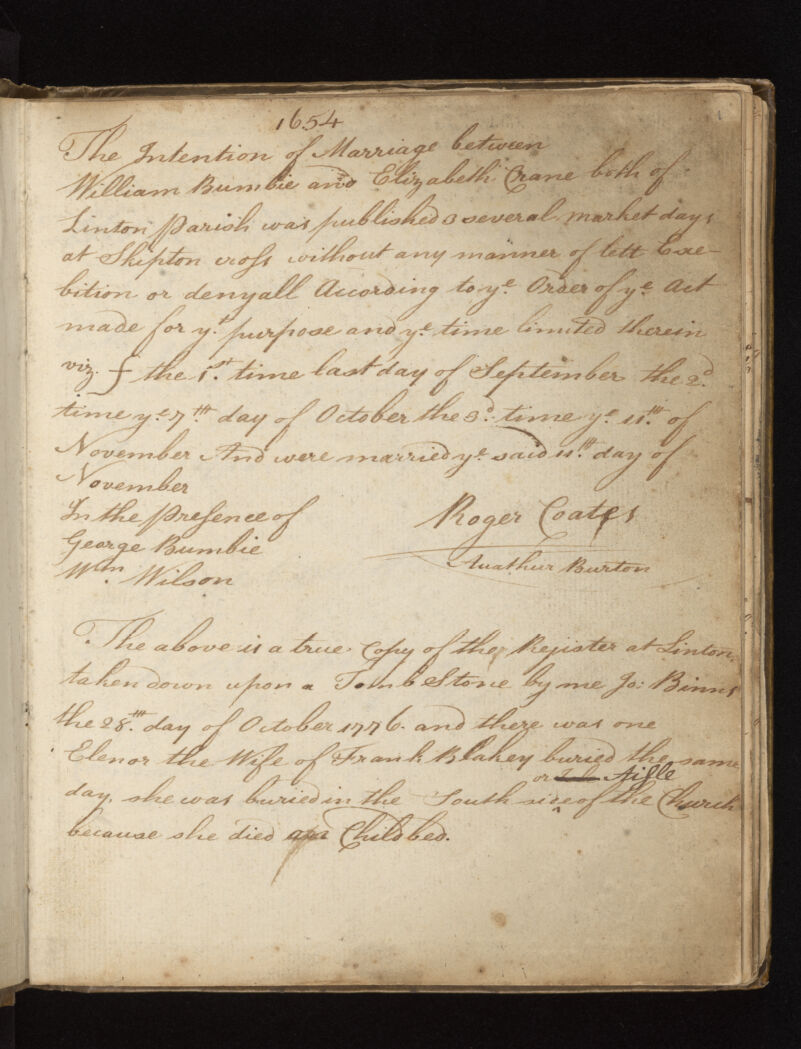 1
1654
The Intention of Marriage between
William Bumbie and Elizabeth Crane both of
Linton Parish was published 3 several market days
at Skipton cross without any manner of lett Exe-
bition or denyall According to ye. Order of ye. Act
made for yt. purpose and ye. time limited therein
viz. the 1st. time last day of September the 2d.
time ye. 7th. day of October the 3d. time ye. 11th. of
November And were married ye. said 11th. day of
November
In the presence of Roger Coates
George Bumbie
Wm. Wilson Burton
The above is a true Copy of the Register at Linton
taken down upon a Tomb Stone by me Jo: Binns
the 28th. day of October 1776. and there was one
Elenor the Wife of Frank Blakey buried the same
or Aisle
day, she was buried in the South side of the Church
because she died Childbed.